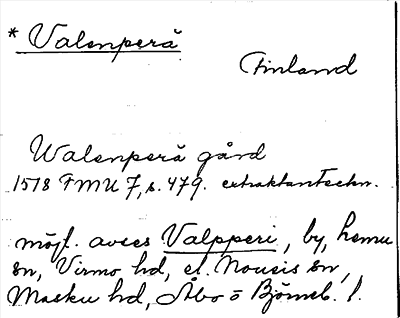 * Valenperä
Finland
Walenperä gård
1518 FMU 7, s. 479. extraktanteckn.
möjl. avses Valpperi, by, Lemu
sn, Virmo hd, el. Nousis sn,
Masku hd, Åbo o Björneb. l.